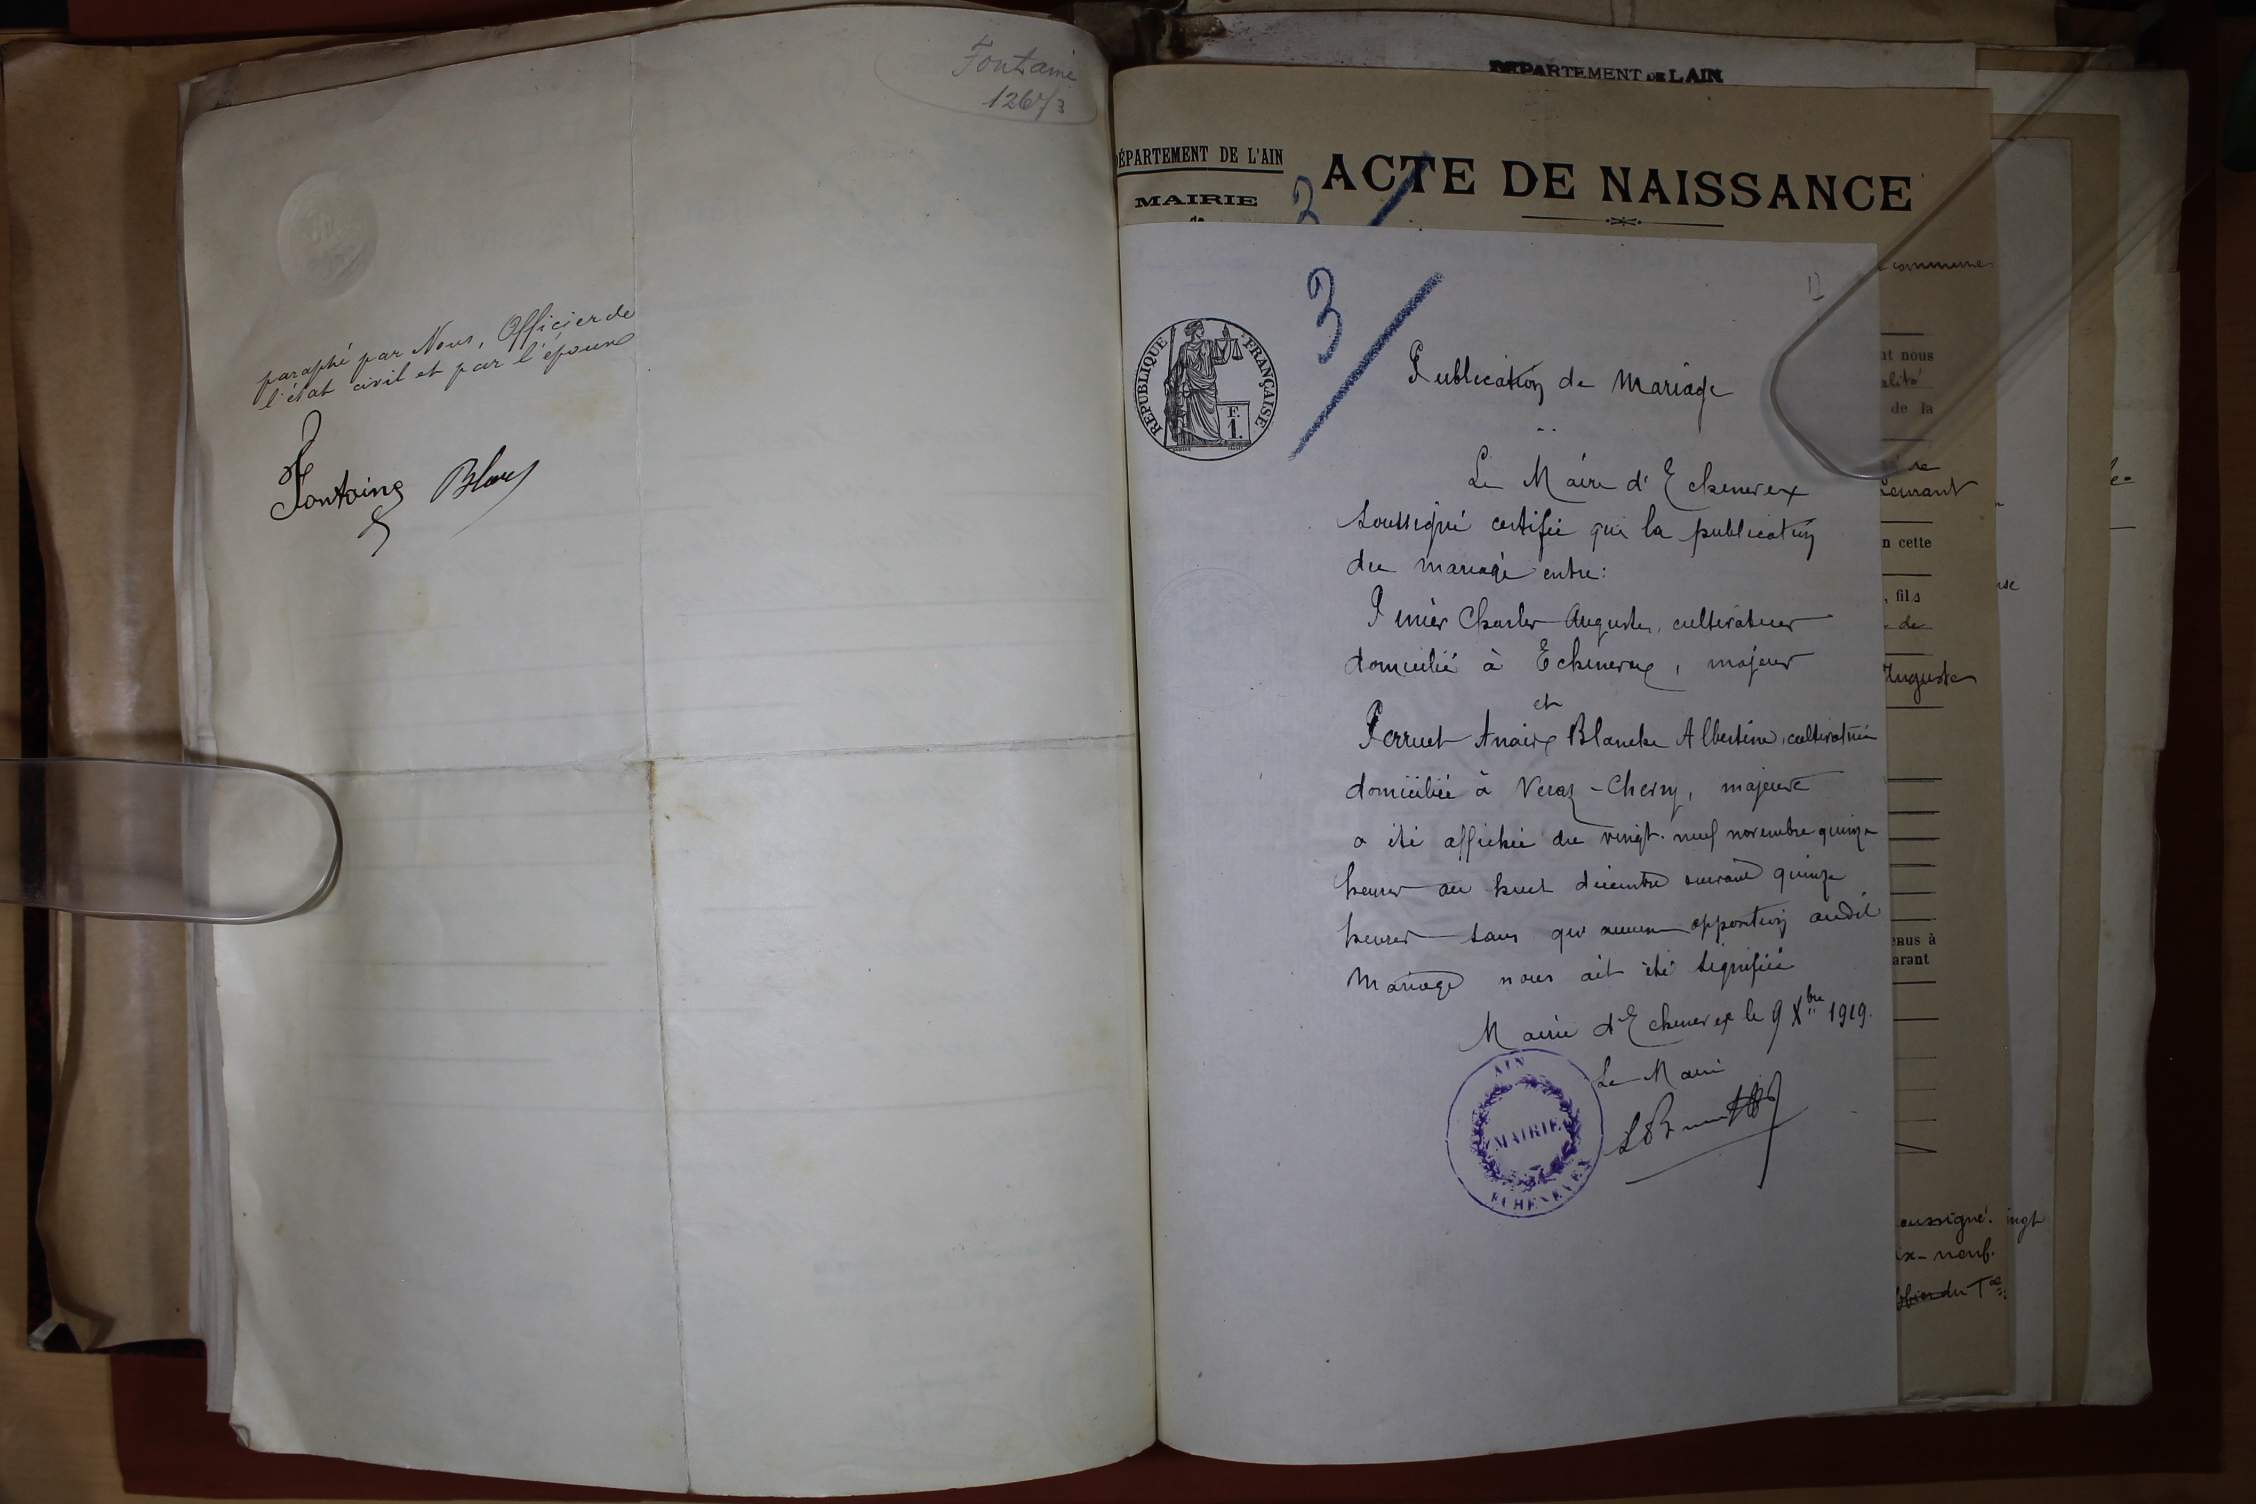 Fontaine
126/3
paraphé par Nous, Officier de
l'état civil et par l'époux
Fontaine
DEPARTEMENT DE L'AIN
DÉPARTEMENT DE L'AIN
MAIRIE
de
ACTE DE NAISSANCE
3
3
RÉPUBLIQUE FRANÇAISE
F.
1.
Publication de Mariage
Le Maire d'Echenevex
soussigné certifie que la publication
du mariage entre:
Charles Auguste, cultivateur
domicilié à Echenevex, majeur
et
Perruet Anaïs Blanche Albertine, cultivatrice
domiciliée à Veraz-Chevry, majeure
a été affichée du vingt-neuf novembre quinze
heures au huit décembre suivant quinze
heures sans qu'aucune opposition audit
mariage nous ait été signifiée
Mairie d'Echenevex le 9 Xbre 1919.
Le Maire
AIN
MAIRIE
ECHENEVEX
commune
nt nous
alité
de la
courant
n cette
, fils
de
Auguste
enus à
arant
oussigné.
ix-neuf.
ingt